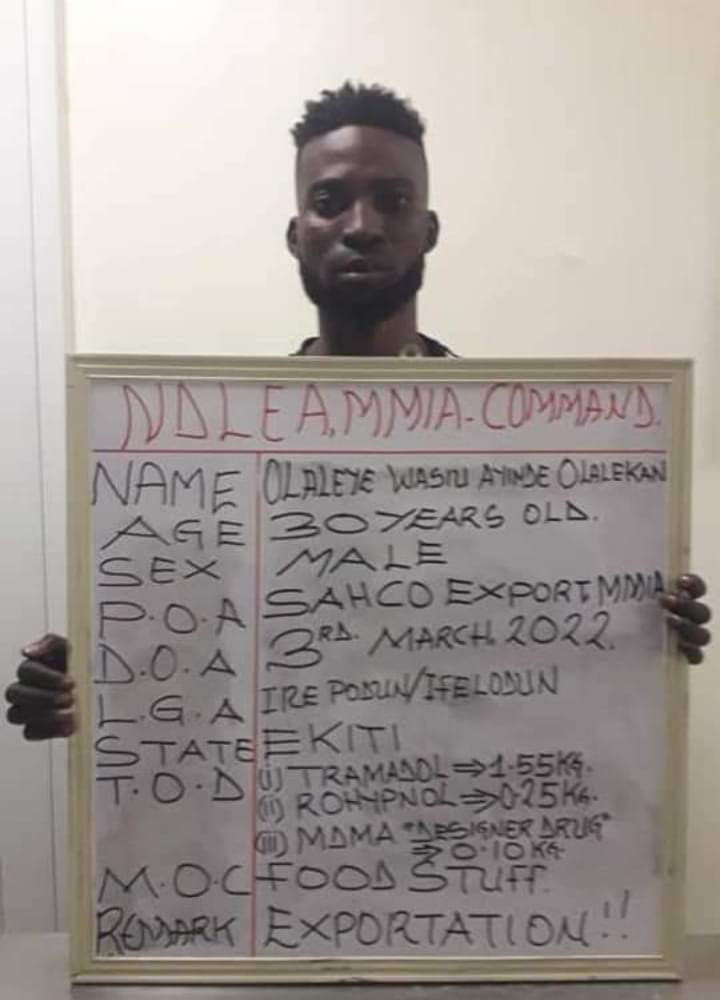 NDLEA, MMIA-COMMAND.
NAME OLALEYE WASIU AYINDE OLALEKAN
AGE 30 YEARS OLD.
SEX MALE
P.O.A SAHCO EXPORT MMIA
D.O.A 3RD. MARCH. 2022.
L.G.A IREPODUN/IFELODUN
STATE EKITI
T.O.D (i) TRAMADOL ⇒ 1.55KG.
(ii) ROHYPNOL ⇒ 0.25KG.
(iii) MDMA "DESIGNER DRUG"
⇒ 0.10KG
M.O.C FOOD STUFF.
REMARK EXPORTATION!!